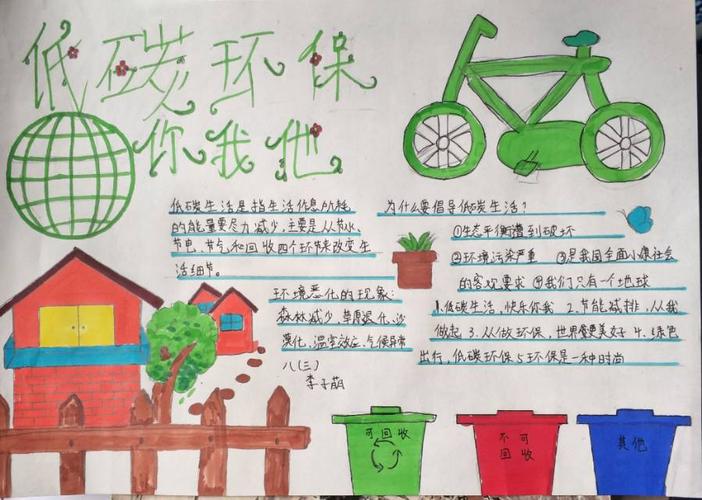 低碳环保
你我他
低碳生活是指生活作息所耗
的能量要尽力减少,主要是从节水、
节电、节气和回收四个环节来改变生
活细节。
环境恶化的现象:
森林减少,草原退化,沙
漠化,温室效应,气候异常
八(三)
李子萌
为什么要倡导低碳生活?
①生态平衡遭到破环
②环境污染严重 ③是我国全面小康社会
的客观要求 ④我们只有一个地球
1.低碳生活,快乐你我 2.节能减排,从我
做起 3.从做环保,世界会更美好 4.绿色
出行,低碳环保 5环保是一种时尚
可回收
不可
回收
其他